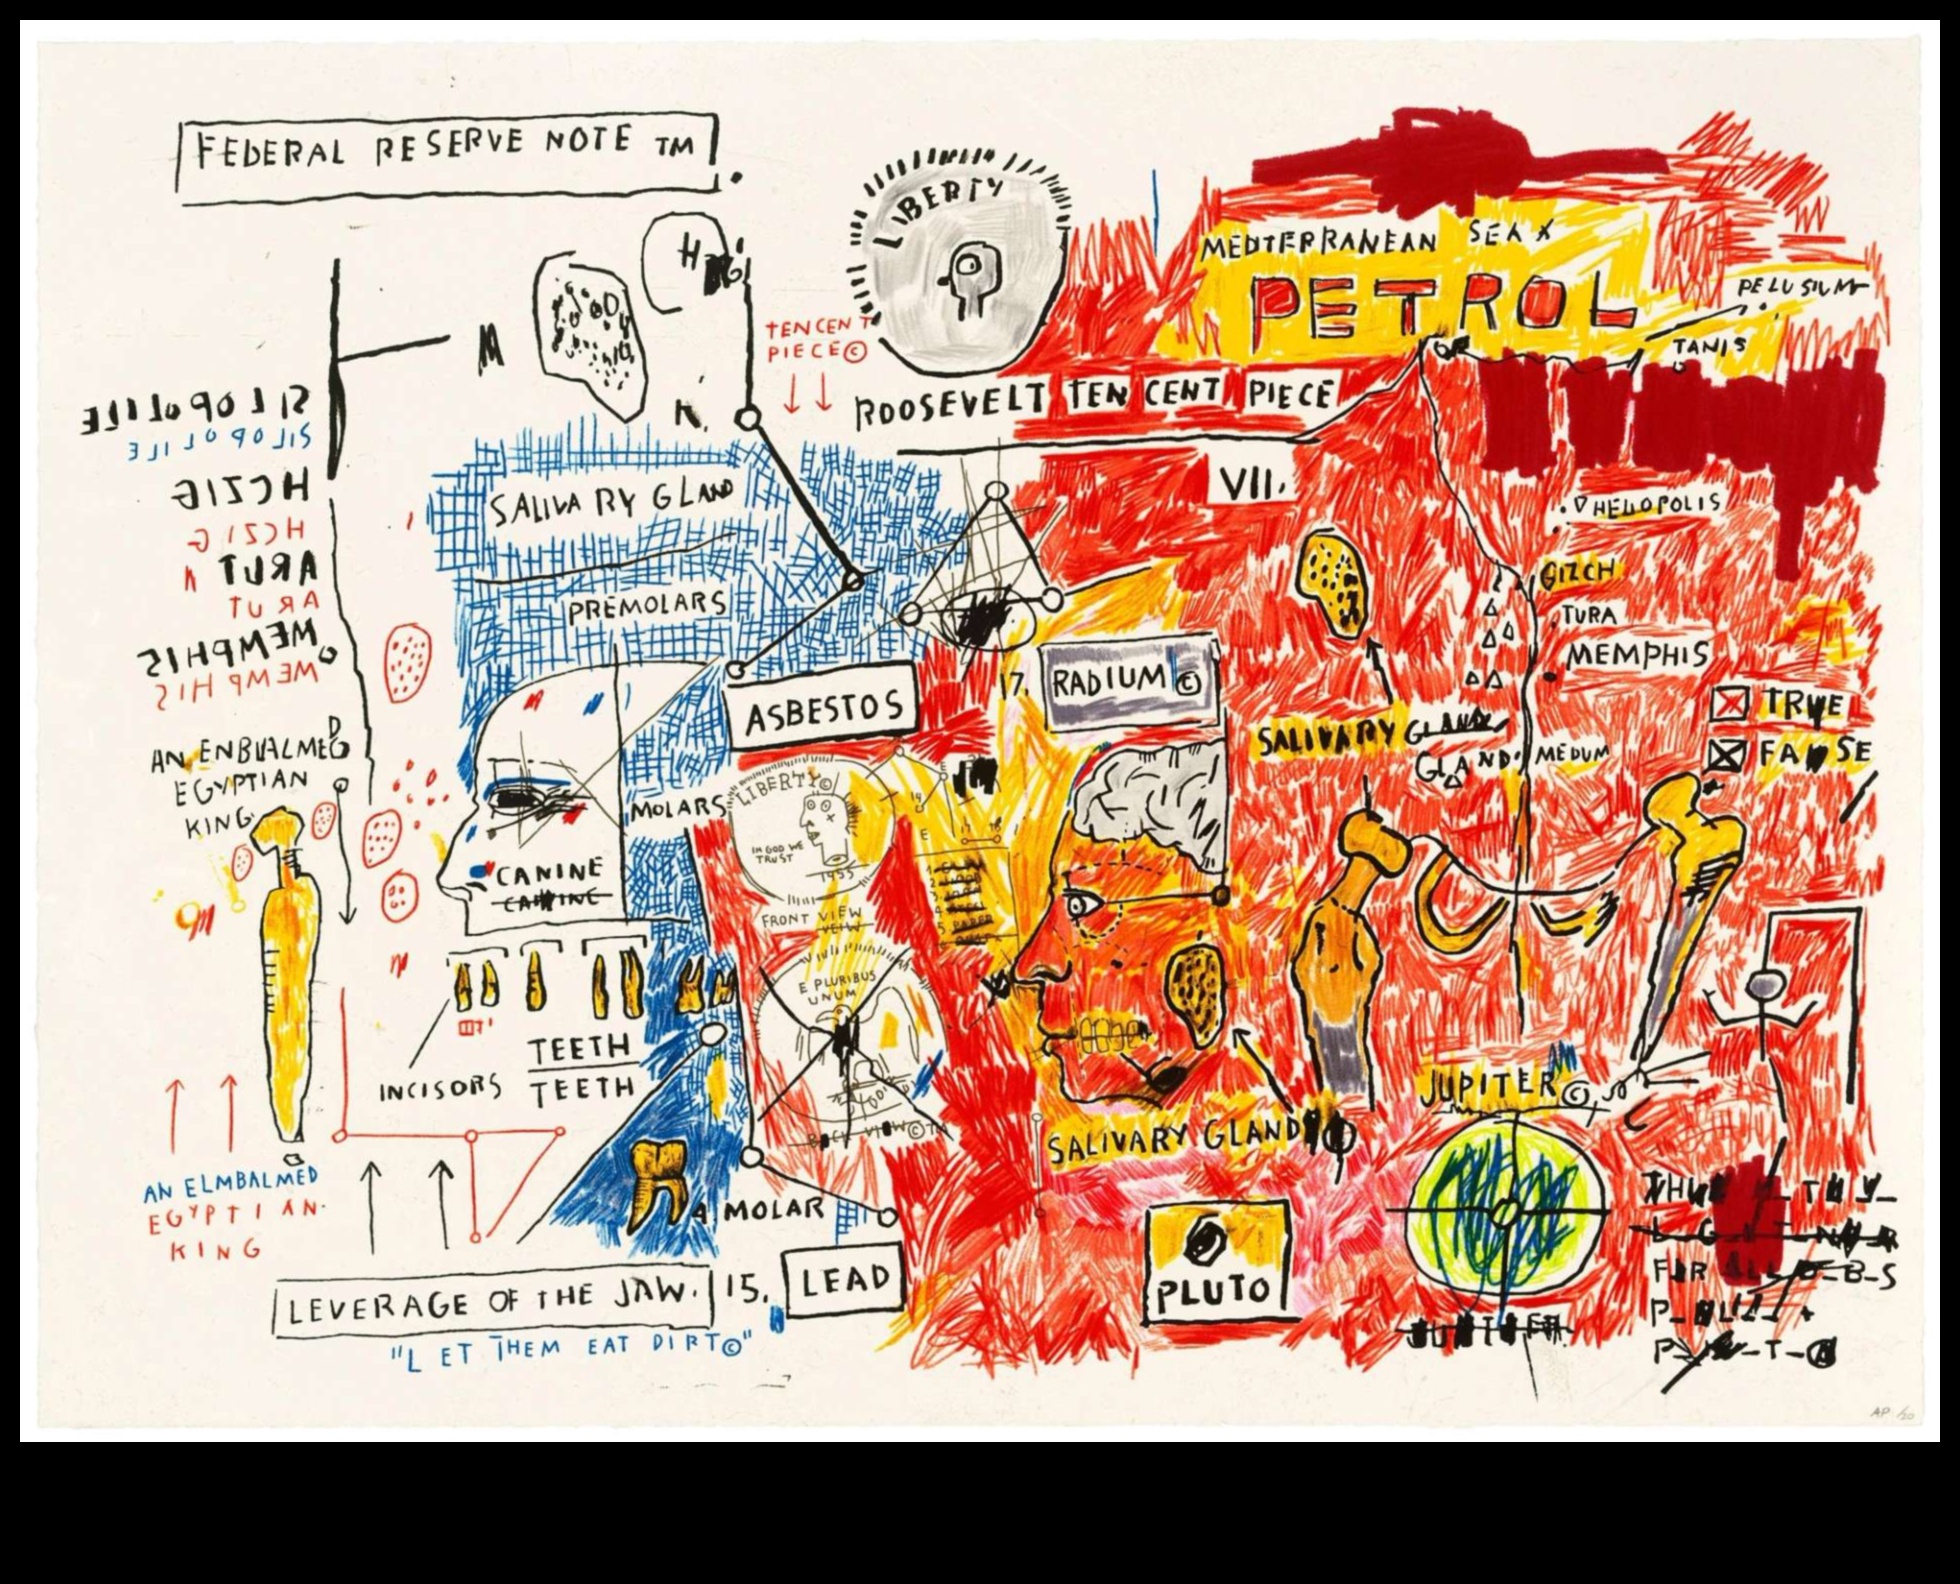 FEDERAL RESERVE NOTE TM
LIBERTY
TEN CENT
PIECE©
MEDTERRANEAN SEA
PETROL
PELUSIUM
TANIS
ROOSEVELT TEN CENT PIECE
VII.
SILOPOLILE
SILOPOLILE
HCZIG
HCZIG
ARUT
ARUT
MEMPHIS
MEMPHIS
SALIVARY GLAND
PREMOLARS
HELIOPOLIS
GIZCH
TURA
MEMPHIS
ASBESTOS
17. RADIUM ©
SALIVARY GLAND
GLAND
MEDUM
TRUE
FALSE
AN ENBIALMED
EGYPTIAN
KING
MOLARS
CANINE
CANINE
LIBERTY©
IN GOD WE
TRUST
1955
FRONT VIEW
VEIW
E PLURIBUS
UNUM
BACK VIEW©TM
INCISORS
TEETH
TEETH
AN ELMBALMED
EGYPTIAN.
KING
A MOLAR
SALIVARY GLAND
JUPITER©
PLUTO
LEVERAGE OF THE JAW. 15.
LEAD
"LET THEM EAT DIRT©"
AP /20